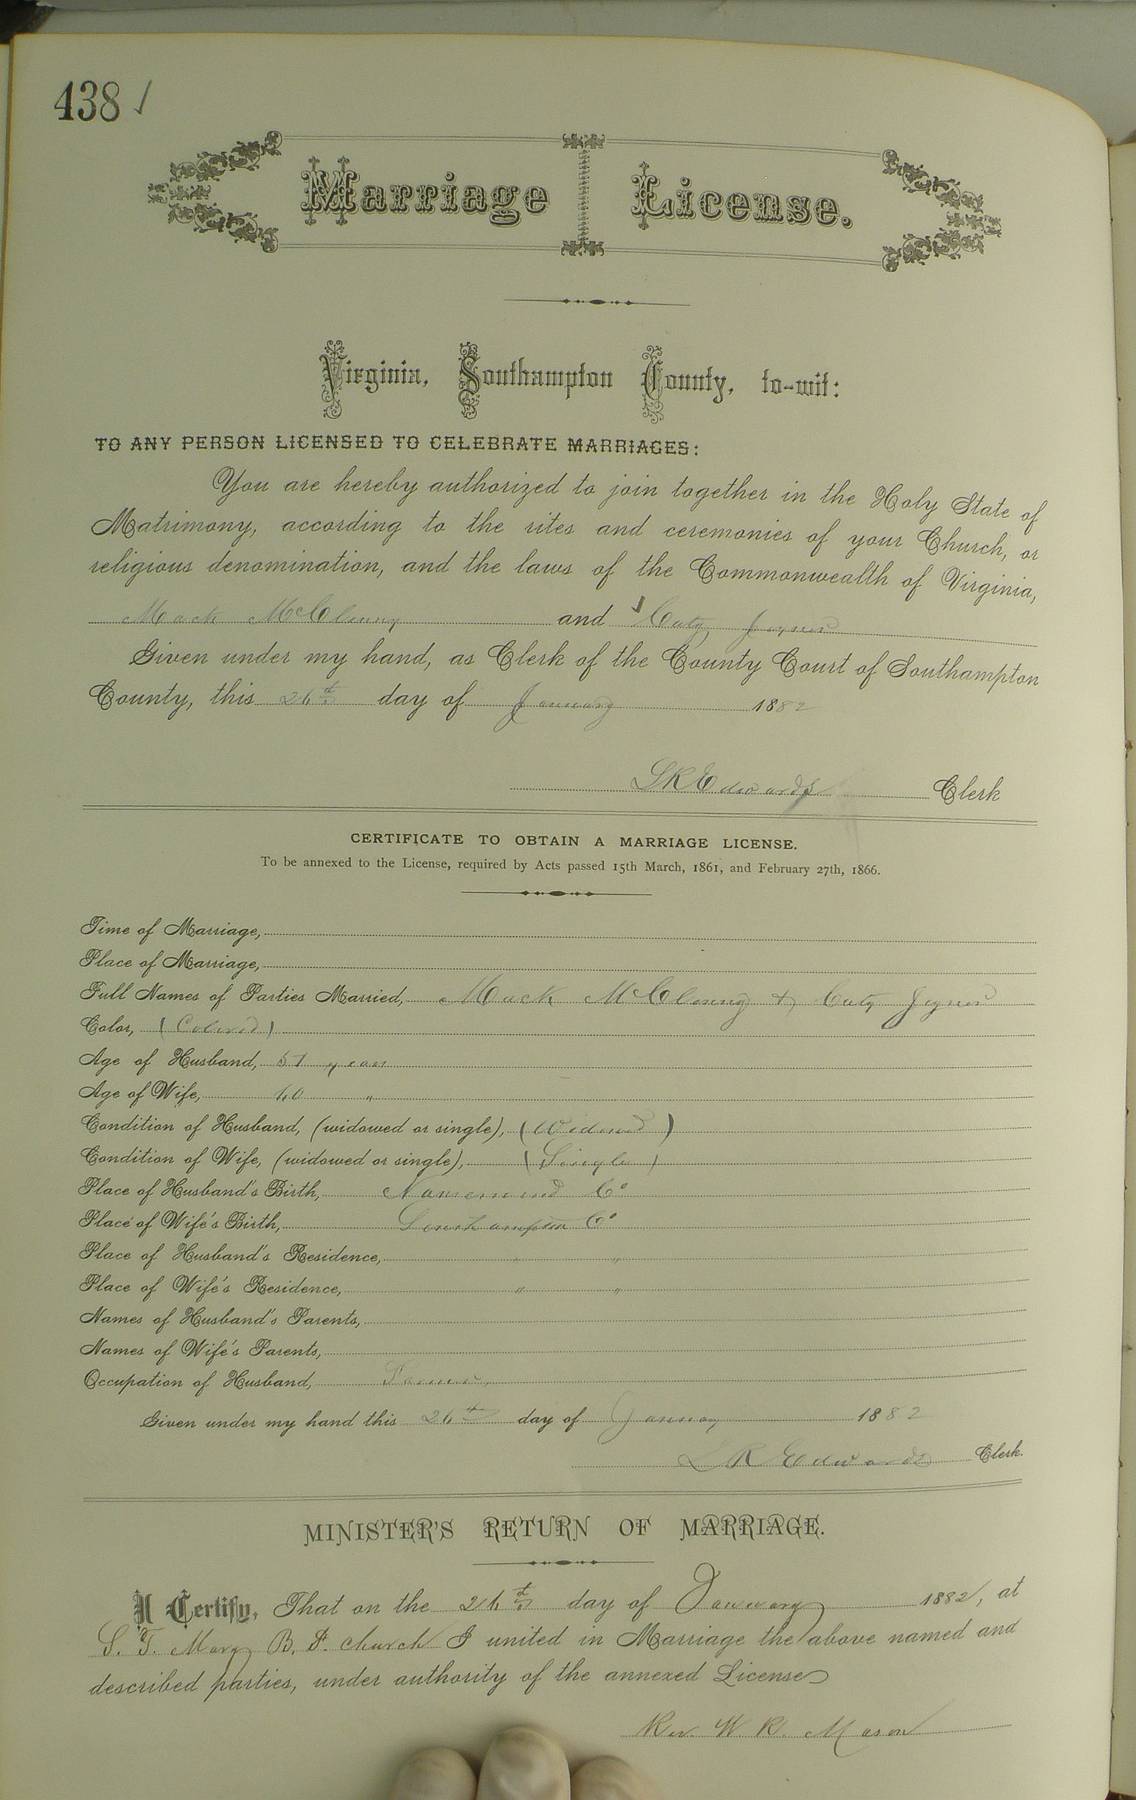 438 ✓
Marriage License.
Virginia, Southampton County, to-wit:
TO ANY PERSON LICENSED TO CELEBRATE MARRIAGES:
You are hereby authorized to join together in the Holy State of
Matrimony, according to the rites and ceremonies of your Church, or
religious denomination, and the laws of the Commonwealth of Virginia,
Mack McClenny and ✓ Caty Joyner
Given under my hand, as Clerk of the County Court of Southampton
County, this 26th day of January 1882
L R Edwards Clerk
CERTIFICATE TO OBTAIN A MARRIAGE LICENSE.
To be annexed to the License, required by Acts passed 15th March, 1861, and February 27th, 1866.
Time of Marriage,
Place of Marriage,
Full Names of Parties Married, Mack McClenny & Caty Joyner
Color, (Colored)
Age of Husband, 57 years
Age of Wife, 40 "
Condition of Husband, (widowed or single), (Widowed)
Condition of Wife, (widowed or single), (Single)
Place of Husband's Birth, Nansemond Co
Place of Wife's Birth, Southampton Co
Place of Husband's Residence, " "
Place of Wife's Residence, " "
Names of Husband's Parents,
Names of Wife's Parents,
Occupation of Husband, Farmer
Given under my hand this 26th day of January 1882
L R Edwards Clerk.
MINISTER'S RETURN OF MARRIAGE.
I Certify, That on the 26th day of January 1882, at
S. T. Mary B. P. Church I united in Marriage the above named and
described parties, under authority of the annexed License
Rev. W. R. Mason